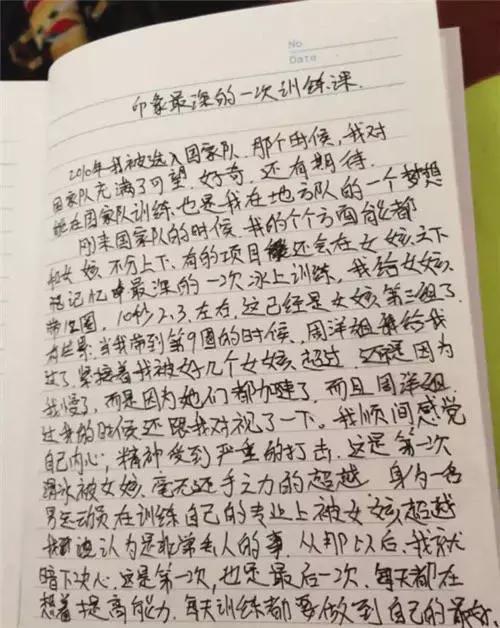 No
Date
印象最深的一次训练课.
2010年我被选入国家队.那个时候,我对
国家队充满了可望.好奇.还有期待.
能在国家队训练也是我在地方队的一个梦想
刚来国家队的时候.我的个个方面能都
和女孩不分上下、有的项目 还会在女孩之下
记忆中最深的一次冰上训练,我给女孩
带12圈,10秒2、3.左右,这已经是女孩第三组了
当我带到第9圈的时候,周洋姐 给我
过了.紧接着我被好几个女孩超过. 因为
我慢了,而是因为她们都加速了,而且周洋姐
过我的时候还跟我对视了一下.我顺间感觉
自己内心,精神受到严重的打击.这是第一次
滑冰被女孩毫无还手之力的超越 身为一名
男运动员在训练自己的专业上被女孩超越
我 认为是非常丢人的事.从那以后.我就
暗下决心.这是第一次,也是最后一次.每天都在
想着提高能力.每天训练都要做到自己的最